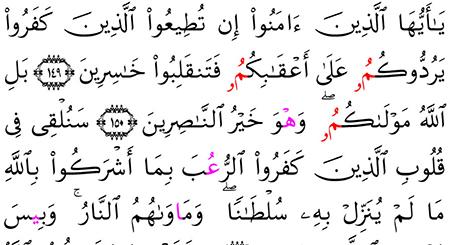 يَـٰٓأَيُّهَا ٱلَّذِينَ ءَامَنُوٓا۟ إِن تُطِيعُوا۟ ٱلَّذِينَ كَفَرُوا۟
يَرُدُّوكُمُۥ عَلَىٰٓ أَعْقَـٰبِكُمُۥ فَتَنقَلِبُوا۟ خَـٰسِرِينَ ﴿١٤٩﴾ بَلِ
ٱللَّهُ مَوْلَىٰكُمُۥ ۖ وَهْوَ خَيْرُ ٱلنَّـٰصِرِينَ ﴿١٥٠﴾ سَنُلْقِى فِى
قُلُوبِ ٱلَّذِينَ كَفَرُوا۟ ٱلرُّعُبَ بِمَآ أَشْرَكُوا۟ بِٱللَّهِ
مَا لَمْ يُنَزِّلْ بِهِۦ سُلْطَـٰنًا ۖ وَمَاوَىٰهُمُ ٱلنَّارُ ۚ وَبِيسَ